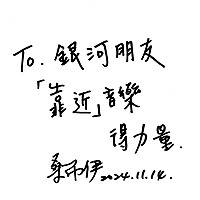 To. 銀河朋友
「靠近」音樂
得力量.
桑布伊2024.11.14.